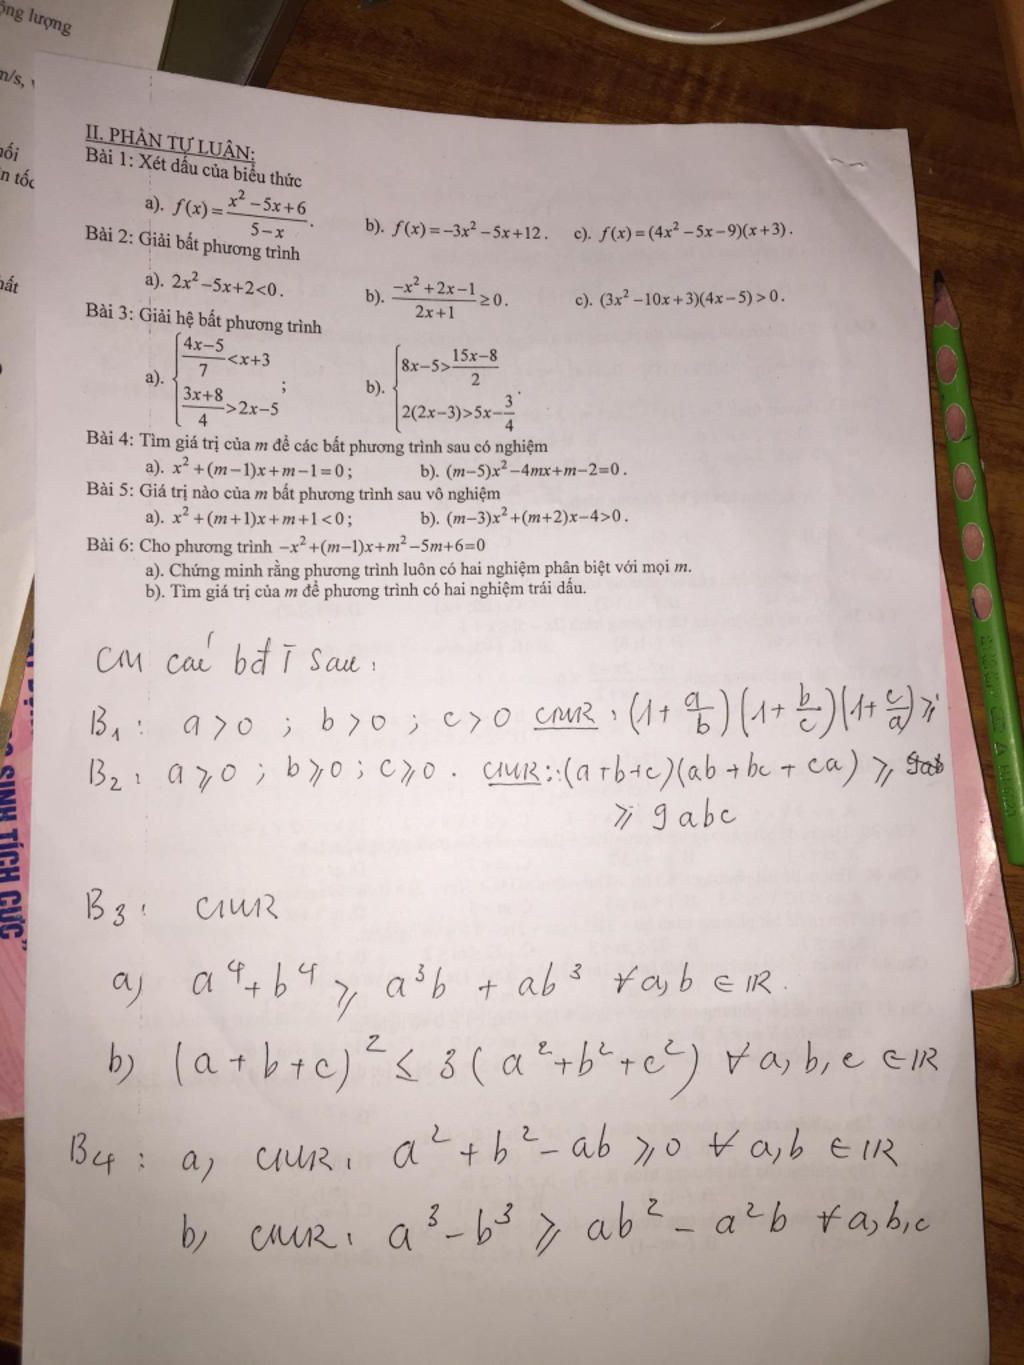 ông lượng
m/s,
II. PHẦN TỰ LUẬN:
Bài 1: Xét dấu của biểu thức
a). f(x) = (x² −5x+6)/(5−x). b). f(x) = −3x² −5x+12. c). f(x) = (4x² −5x−9)(x+3).
Bài 2: Giải bất phương trình
a). 2x² −5x+2<0. b). (−x² +2x−1)/(2x+1) ≥0. c). (3x² −10x+3)(4x−5) >0.
Bài 3: Giải hệ bất phương trình
a). { (4x−5)/7 <x+3 ; b). { 8x−5> (15x−8)/2 .
(3x+8)/4 >2x−5 2(2x−3)>5x−3/4
Bài 4: Tìm giá trị của m để các bất phương trình sau có nghiệm
a). x² +(m−1)x+m−1=0; b). (m−5)x² −4mx+m−2=0.
Bài 5: Giá trị nào của m bất phương trình sau vô nghiệm
a). x² +(m+1)x+m+1<0; b). (m−3)x² +(m+2)x−4>0.
Bài 6: Cho phương trình −x² +(m−1)x+m² −5m+6=0
a). Chứng minh rằng phương trình luôn có hai nghiệm phân biệt với mọi m.
b). Tìm giá trị của m để phương trình có hai nghiệm trái dấu.
CM các bđT sau:
B1: a > 0 ; b > 0 ; c > 0 CMR: (1+ a/b)(1+ b/c)(1+ c/a) ⩾
B2: a ⩾ 0 ; b ⩾ 0 ; c ⩾ 0. CMR: (a+b+c)(ab+bc+ca) ⩾ 9ab
⩾ 9abc
B3: CMR
a) a⁴ + b⁴ ⩾ a³b + ab³ ∀a,b ∈ IR.
b) (a+b+c)² ≤ 3(a²+b²+c²) ∀a,b,c ∈ IR
B4: a) CMR: a² + b² − ab ⩾ 0 ∀a,b ∈ IR
b) CMR: a³ − b³ ⩾ ab² − a²b ∀a,b,c
SINH TÍCH CỰC"